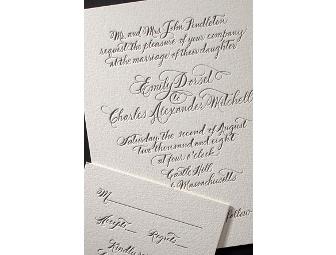 Mr. and Mrs. John Pendleton
request the pleasure of your company
at the marriage of their daughter
Emily Dorsel
to
Charles Alexander Witchell
Saturday, the second of August
Two thousand and eight
at four o'clock
Castle Hill
Massachusetts
follow
M
Accepts
Regrets
Kindly